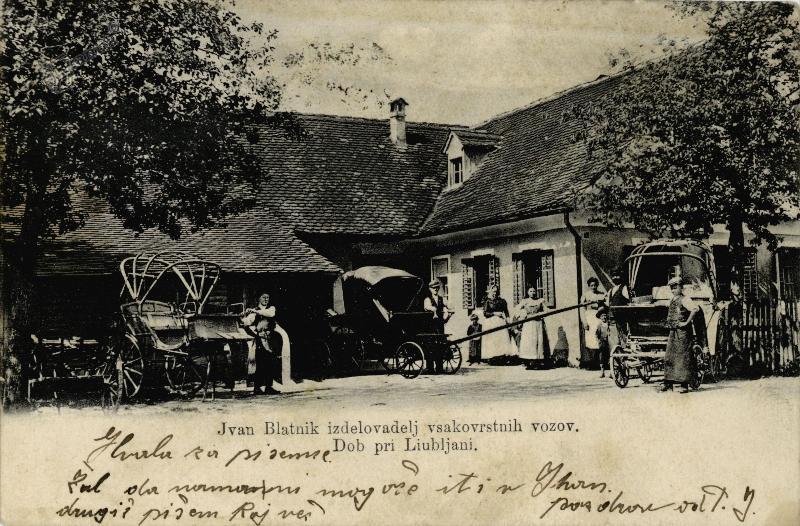 Jvan Blatnik izdelovadelj vsakovrstnih vozov.
Dob pri Liubljani.
Hvala za pisemce
Žal da nama ni mogoče iti v Ihan.
drugič pišem kaj več pozdrav od T. J.